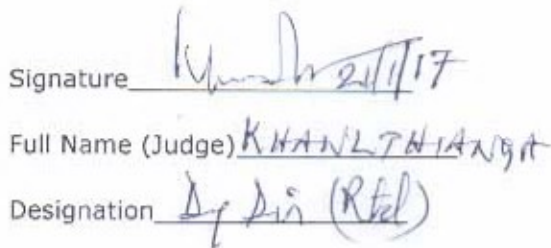 Signature 21/1/17
Full Name (Judge) KHANLTHIANGA
Designation Dy Dir (Rtd)